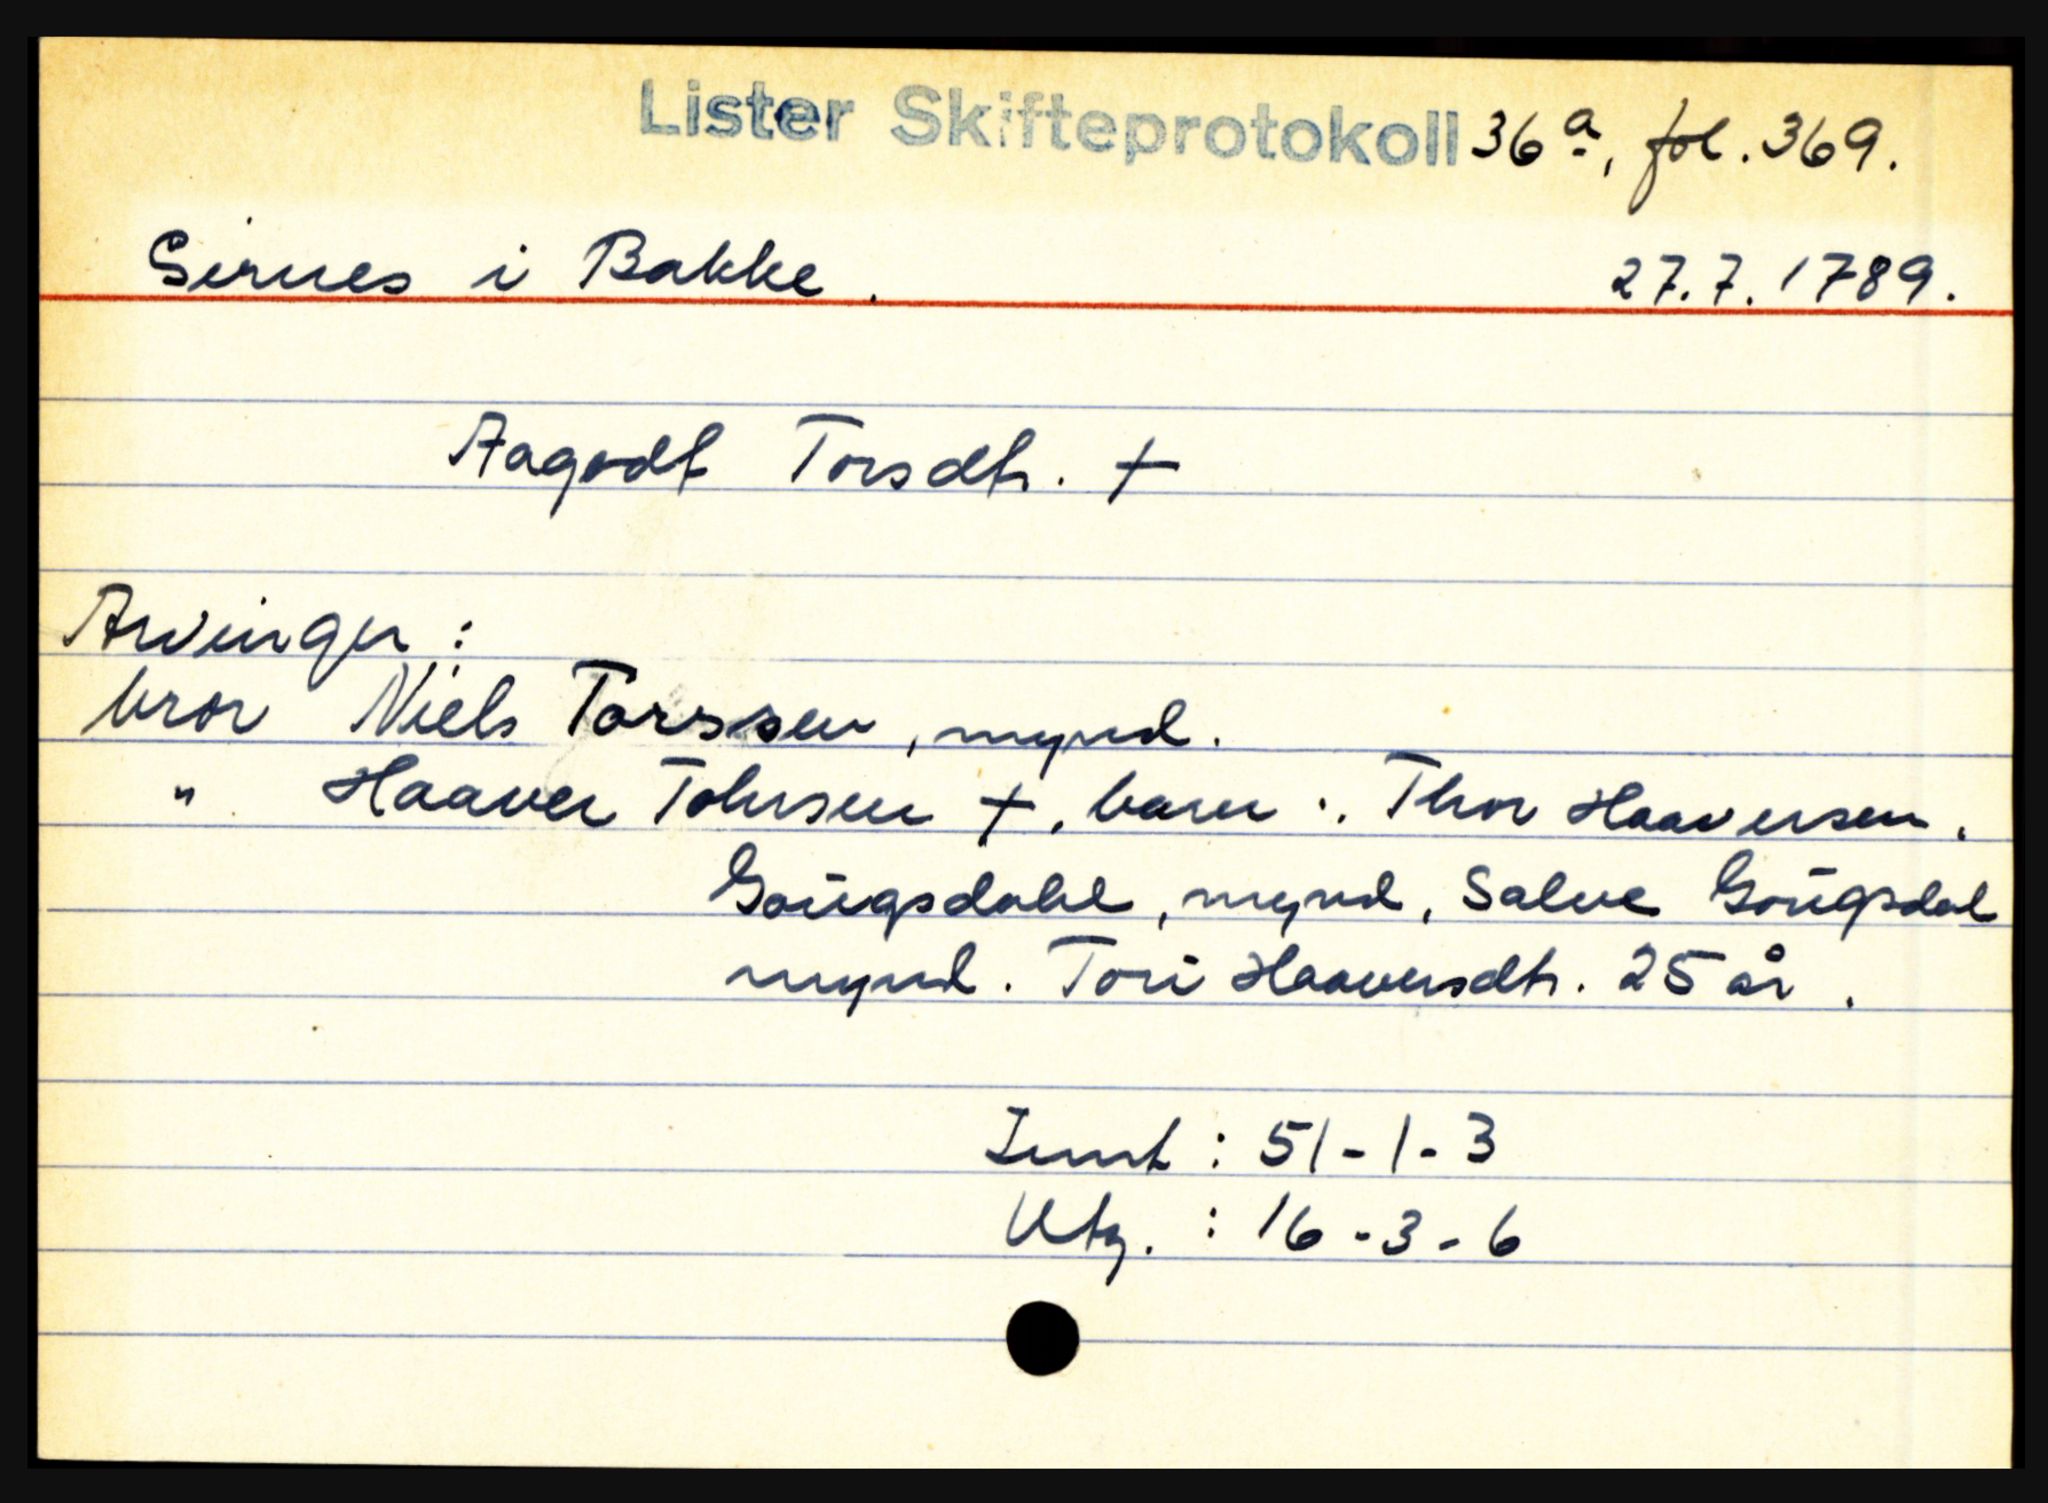 Lister Skifteprotokoll 36a, fol. 369.
Sirnes i Bakke. 27.7.1789.
Aagodt Torsdtr. +
Arvinger:
bror Niels Torssen, mynd.
" Haaver Tohrsen +, barn: Thor Haaversen,
Goügsdahl, mynd, Salve Goügsdal
mynd. Tori Haaversdtr. 25 år.
Innt: 51-1-3
Utg.: 16-3-6